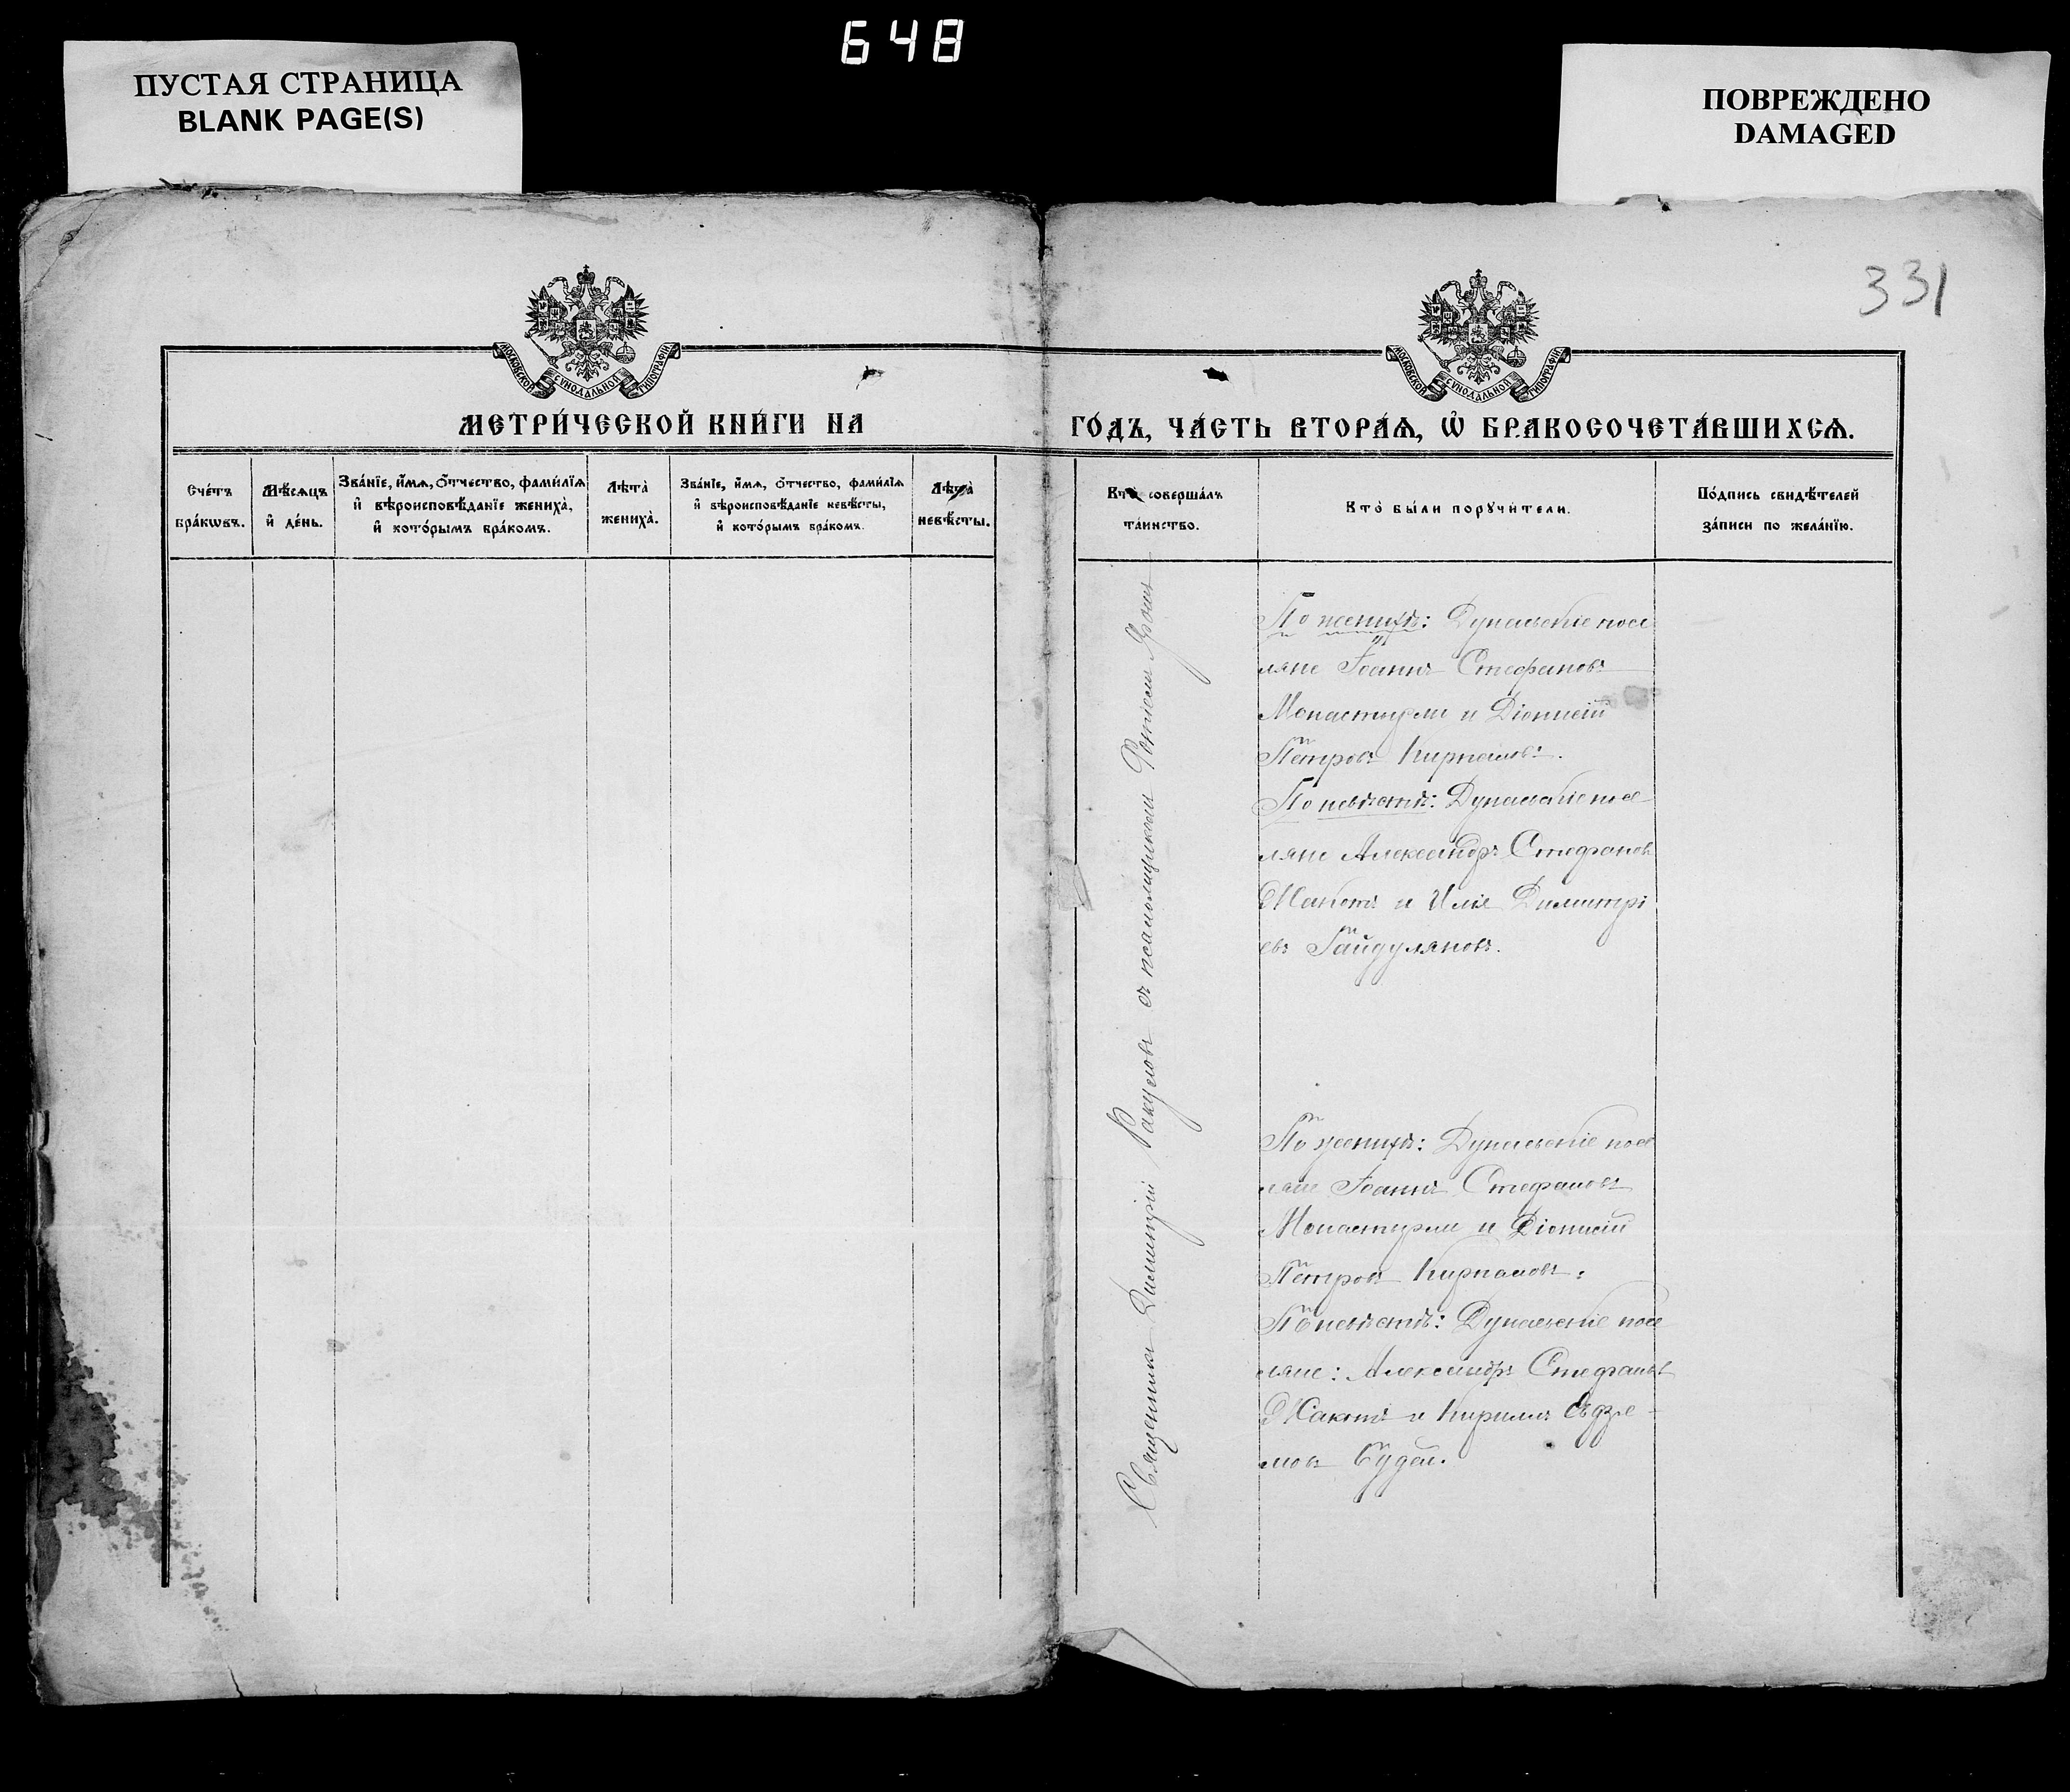 648
ПУСТАЯ СТРАНИЦА
BLANK PAGE(S)
ПОВРЕЖДЕНО
DAMAGED
331
МОСКОВСКОЙ СѴНОДАЛЬНОЙ ТИПОГРАФІИ
МОСКОВСКОЙ СѴНОДАЛЬНОЙ ТИПОГРАФІИ
МЕТРИ́ЧЕСКОЙ КНИ́ГИ НА
ГО́ДЪ, ЧА́СТЬ ВТОРА́Ѧ, Ѡ҆ БРАКОСОЧЕТА́ВШИХСѦ.
Сче́тъ
бра́кѡвъ.
Мѣ́сѧцъ
и҆ де́нь.
Зва́нїе, и҆́мѧ, ѻ҆́тчество, фами́лїѧ
и҆ вѣроисповѣ́данїе жениха̀,
и҆ кото́рымъ бра́комъ.
Лѣта̀
жениха̀.
Зва́нїе, и҆́мѧ, ѻ҆́тчество, фами́лїѧ
и҆ вѣроисповѣ́данїе невѣ́сты,
и҆ кото́рымъ бра́комъ.
Лѣта̀
невѣ́сты.
Кто̀ соверша́лъ
та́инство.
Кто̀ бы́ли порꙋчи́тели.
По́дпись свидѣ́телей
за́писи по жела́нїю.
Священникъ Димитрій Ракуловъ съ псаломщикомъ
По женихѣ: Дунаевскіе посе
ляне Іоаннъ Стефановъ
Монастырли и Діонисій
Петровъ Кирнаковъ.
По невѣстѣ: Дунаевскіе посе
ляне Александръ Стефановъ
и Илія Димитрі
евъ Гайдуляновъ.
По женихѣ: Дунаевскіе посе
ляне Іоаннъ Стефановъ
Монастырли и Діонисій
Петровъ
По невѣстѣ: Дунаевскіе посе
ляне: Александръ Стефановъ
и Кириллъ